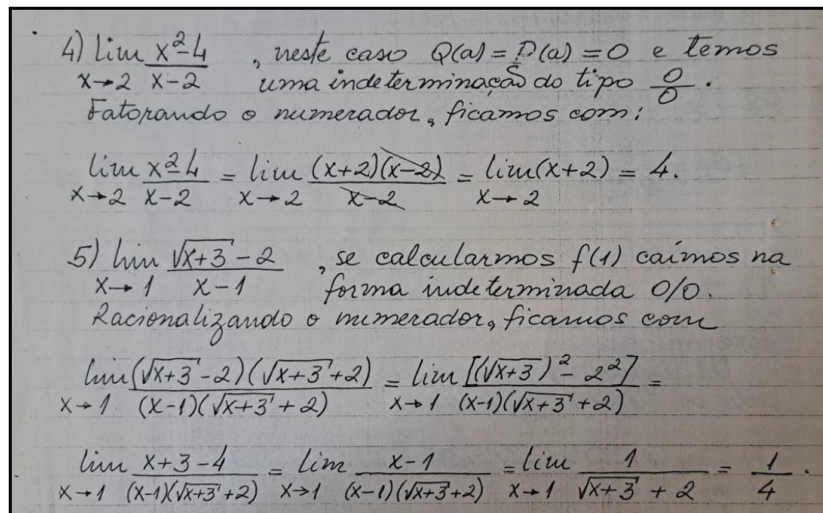 4) lim x²-4 / x-2 , neste caso Q(a) = P(a) = 0 e temos
x→2 uma indeterminação do tipo 0/0.
Fatorando o numerador, ficamos com:
lim x→2 x²-4 / x-2 = lim x→2 (x+2)(x-2) / x-2 = lim x→2 (x+2) = 4.
5) lim √x+3 - 2 / x-1 , se calcularmos f(1) caímos na
x→1 forma indeterminada 0/0.
Racionalizando o numerador, ficamos com
lim x→1 (√x+3 - 2)(√x+3 + 2) / (x-1)(√x+3 + 2) = lim x→1 [(√x+3)² - 2²] / (x-1)(√x+3 + 2) =
lim x→1 x+3-4 / (x-1)(√x+3 + 2) = lim x→1 x-1 / (x-1)(√x+3 + 2) = lim x→1 1 / √x+3 + 2 = 1/4.